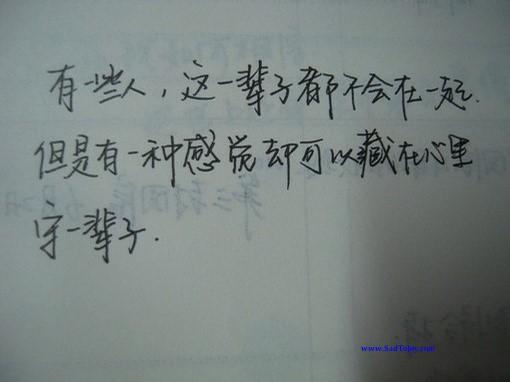 有一些人，这一辈子都不会在一起.
但是有一种感觉却可以藏在心里
守一辈子.
www.SadToJoy.com